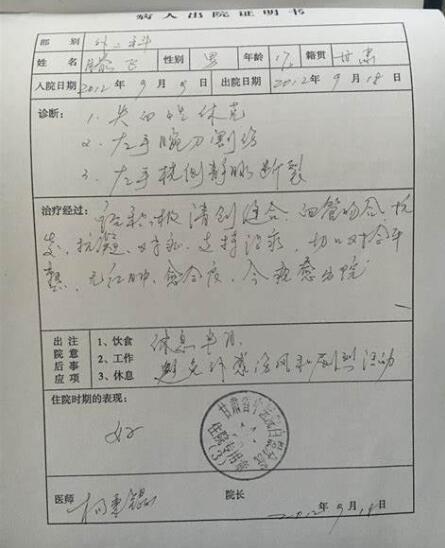 病人出院证明书
部 别 外二科
姓 名 飞 性别 男 年龄 17 籍贯 甘肃
入院日期 2012年9月9日 出院日期 2012年9月18日
诊断: 1. 失血性休克
2. 左手腕刀割伤
3. 左手桡侧静脉断裂
治疗经过: 清创缝合、血管吻合、抗
炎、抗凝、支持治疗,切口对合平
整,无红肿,愈合良,今痊愈出院
出院后注意事项
1、饮食 休息半月
2、工作 避免外寒冷风和剧烈活动
3、休息
住院时期的表现:
好
甘肃省
住院专用章
(3)
医师 院长
2012年9月18日